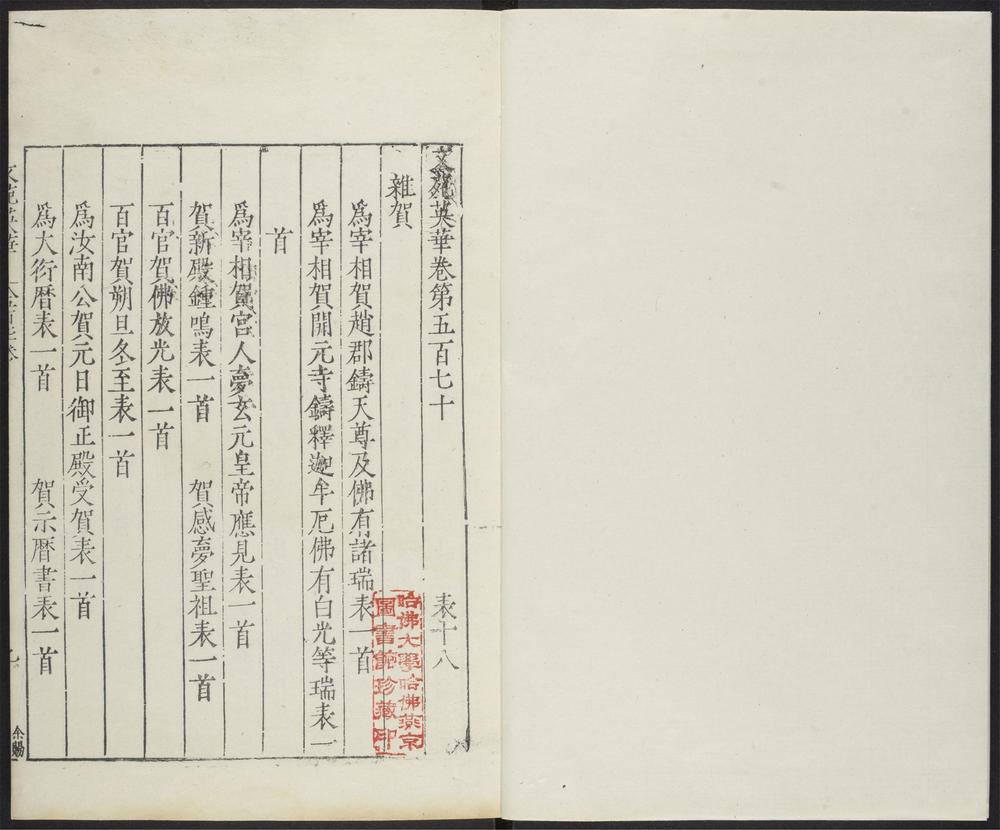 文苑英華卷第五百七十
表十八
雜賀
爲宰相賀趙郡鑄天尊及佛有諸瑞表一首
爲宰相賀開元寺鑄釋迦牟尼佛有白光等瑞表一
首
爲宰相賀宮人夢玄元皇帝應見表一首
賀新殿鍾鳴表一首
賀感夢聖祖表一首
百官賀佛放光表一首
百官賀朔旦冬至表一首
爲汝南公賀元日御正殿受賀表一首
爲大衍曆表一首
賀示曆書表一首
文苑英華
余賜
哈佛大學哈佛燕京
圖書館珍藏印